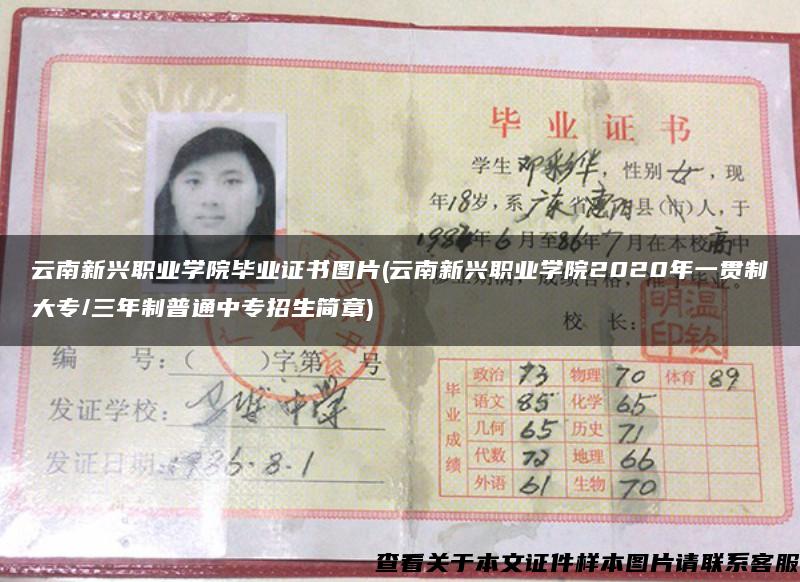 毕业证书
学生邓彩华，性别女，现
年18岁，系广东省惠阳县(市)人，于
年6月至86年7月在本校高中
云南新兴职业学院毕业证书图片(云南新兴职业学院2020年一贯制
大专/三年制普通中专招生简章)
校 长：
温钦明印
编 号：( )字第 号
发证学校：
发证日期：1986.8.1
毕业成绩
政治 73 物理 70 体育 89
语文 85 化学 65
几何 65 历史 71
代数 72 地理 66
外语 61 生物 70
查看关于本文证件样本图片请联系客服